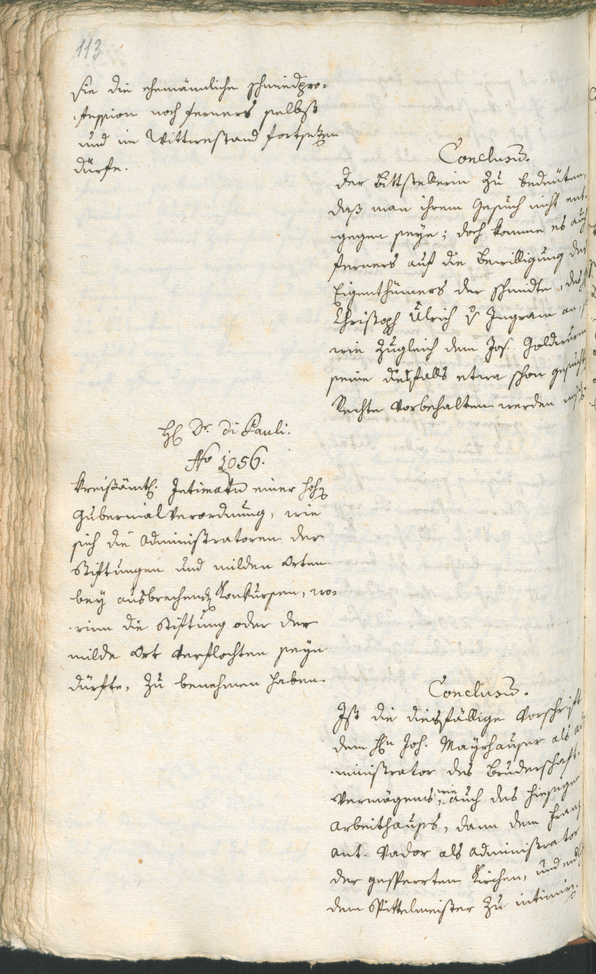 113
sie die ehemännliche Schmiedpro¬
fession noch ferners selbst
und im Wittwestand fortsetzen
dürfe.
Conclusum.
Der Bittstellerin zu bedeuten,
daß man ihrem Gesuch nicht ent¬
gegen seye; doch komme es auch
ferners auf die Bewilligung des
Eigenthümers der Schmidte, des H
Christoph Ulrich v Ingram an,
wie zugleich dem Jos.
seine diesfalls etwa schon gesuchte
Rechte vorbehalten werden
H Dr. di Pauli.
No 1056.
Kreisämtl. Intimatum einer hohen
Gubernialverordnung, wie
sich die Administratoren der
Stiftungen und milden Orten
bey ausbrechenden Konkursen, wo¬
rinn die Stiftung oder der
milde Ort verflochten seyn
dürfte, zu benehmen haben.
Conclusum.
Ist die diesfällige Vorschrift
dem Hn Joh. Mayrhauser als Ad
ministrator des Bruderschaft
Vermögens, wie auch des hiesigen
Arbeithauses, dann dem Franz
Ant. Vador als Administrator
der gesperrten Kirchen, und
dem Spittelmeister zu intimiren.